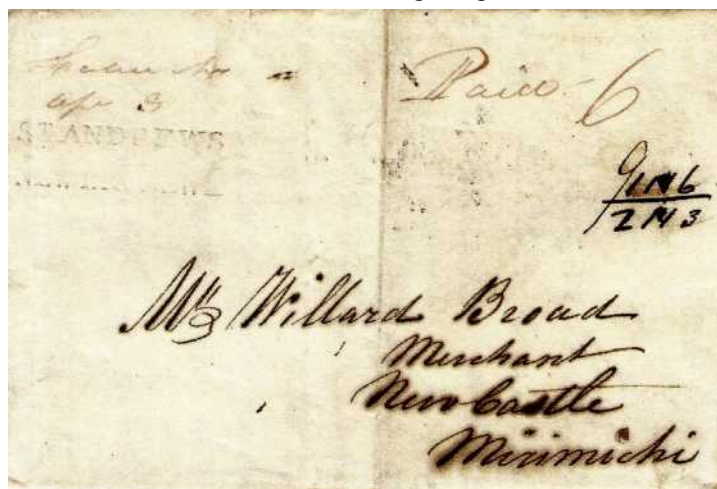 Apr 3
Paid 6
ST ANDREWS
9 1N6
2N3
Mr Willard Broad
Merchant
NewCastle
Mirimichi